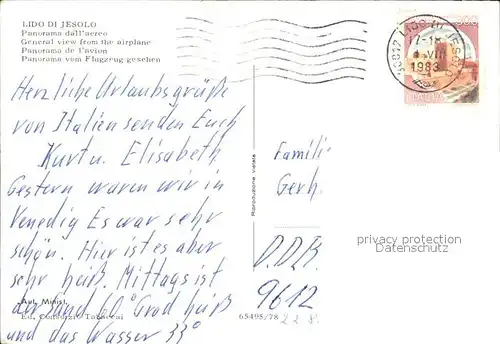 LIDO DI JESOLO
Panorama dall'aereo
General view from the airplane
Panorama de l'avion
Panorama vom Flugzeug gesehen
Herzliche Urlaubsgrüße
von Italien senden Euch
Kurt u. Elisabeth
Gestern waren wir in
Venedig Es war sehr
schön. Hier ist es aber
sehr heiß. Mittags ist
der Sand 60° Grad heiß
und das Wasser 33°
Aut. Minist.
Ed.
65495/78
Riproduzione vietata
LIDO DI JESOLO
1983
Famili
Gerh.
D.D.R.
9612
privacy protection
Datenschutz